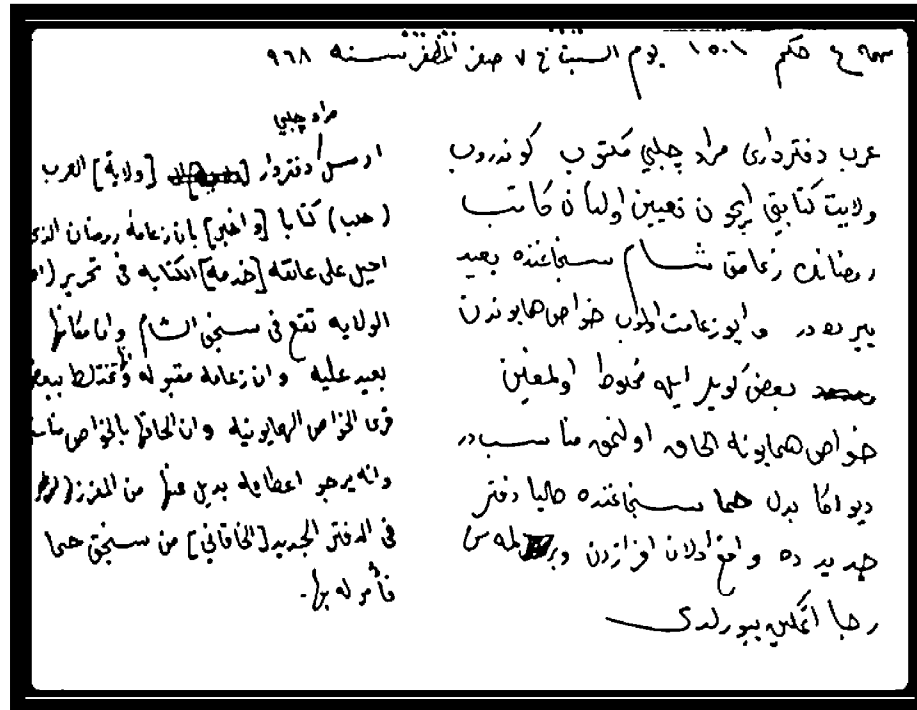 حكم ١٥٠١ يوم السبت في ٧ صفر المظفر سنه ٩٦٨
عرب دفترداری مراد چلبي مكتوب كوندروب
ولايت كتابتی ايچون تعيين اولنان كاتب
رمضانك زعامتی شام سنجاغنده بعيد
يير ده در وابو زعامت اولوب خواص همايوندن
بعض كويلر ايله مخلوط اولمغين
خواص همايونه الحاق اولنمق مناسبدر
ديو اكا بدل حما سنجاغنده حاليا دفتر
جديد ده واقع اولان افرازدن
رجا اتمكين بيورلدی
مراد چلبي
ارسل دفتردار [ولاية] العرب
(حلب) كتابا [واخبر] بان زعامة رمضان الذي
احيل على عاتقه [خدمة] الكتابه في تحرير
الولايه تقع في سنجق الشام وانها مكانها
بعيد عليه وان زعامه وتختلط ببعض
قرى الخواص الهمايونيه وان الحاقها بالخواص مناسب
وانه يرجو اعطاءه بديل عنها من المفرز
في الدفتر الجديد [الخاقاني] من سنجق حما
فأمر له بها.